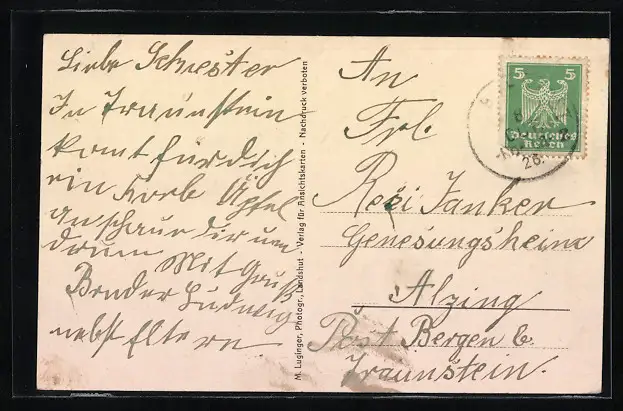 Liebe Schwester
In Traunstein
komt für dich
ein Korb Äpfel
an schaue dir um
drum Mit Gruß
Bruder Ludwig
nebst Eltern
M. Luginger, Photogr., Landshut - Verlag für Ansichtskarten - Nachdruck verboten
An
Frl.
Resi Janker
Genesungsheim
Alzing
Post Bergen b.
Traunstein.
5 5
Deutsches
Reich
26